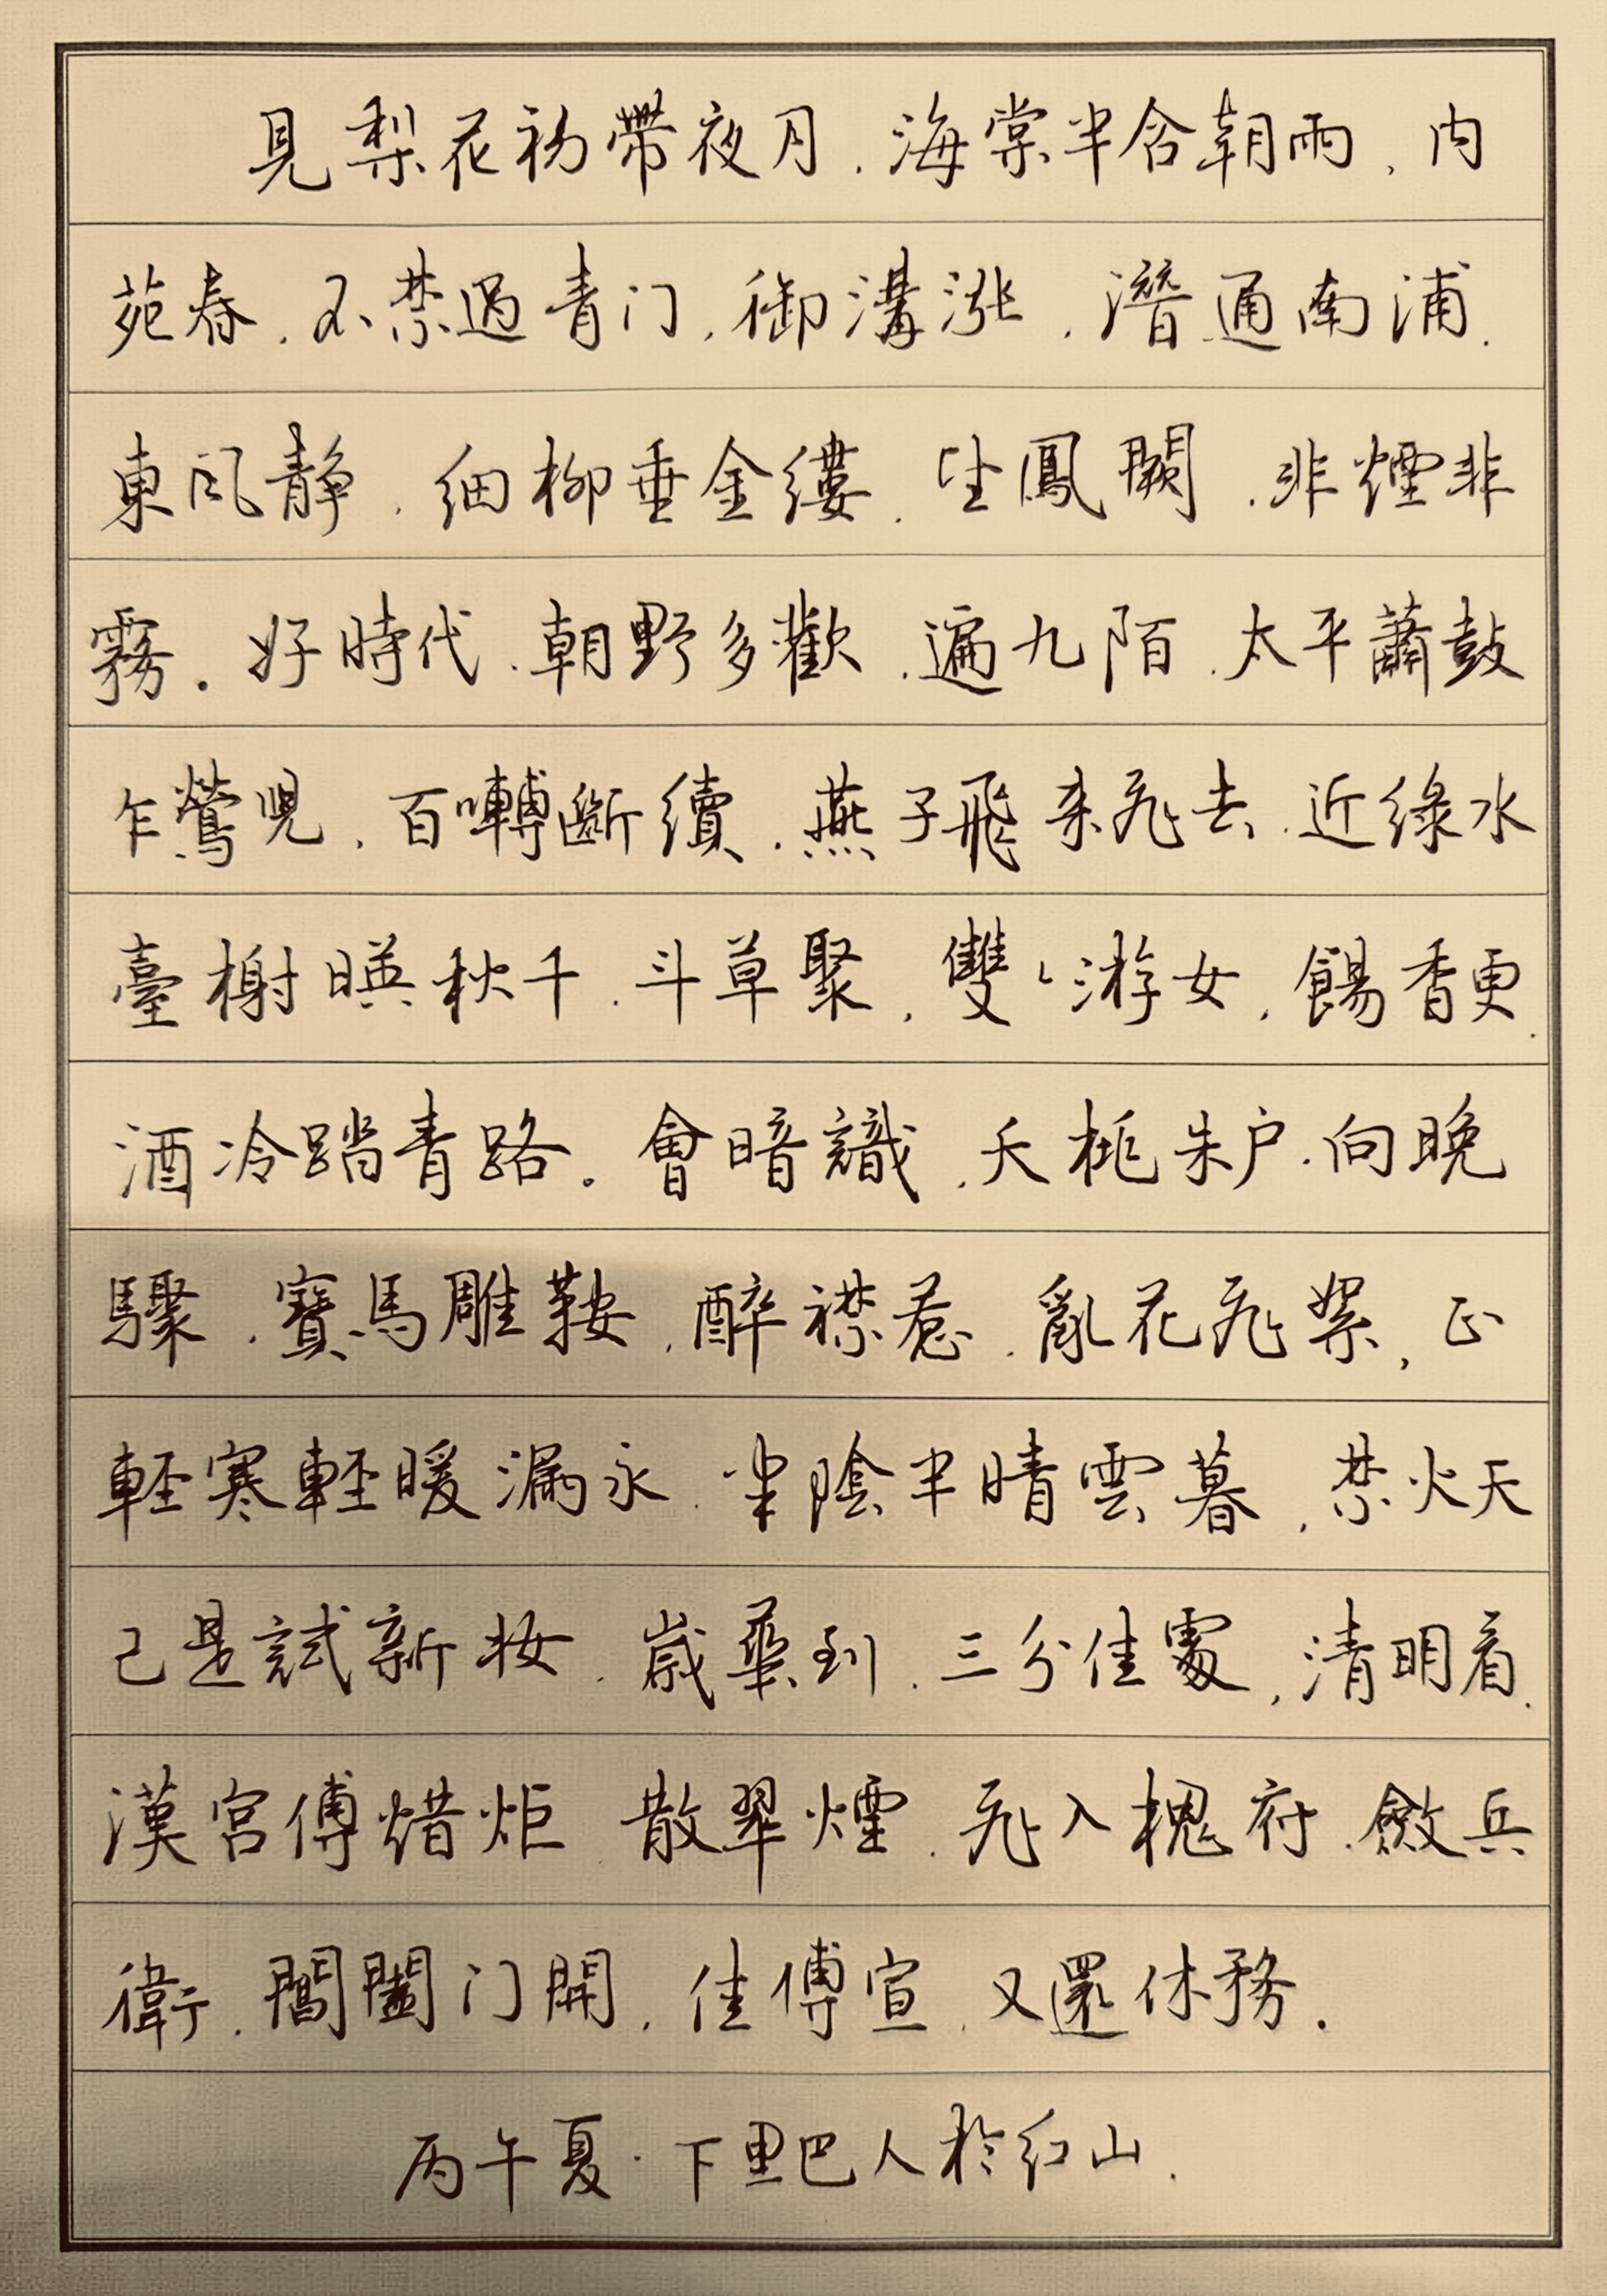 見梨花初帶夜月.海棠半含朝雨.内
苑春.不禁過青门.御溝漲.潛通南浦.
東风静.細柳垂金缕.望鳳闕.非煙非
霧.好時代.朝野多歡.遍九陌.太平蕭鼓
乍鶯兒.百囀斷續.燕子飛来飛去.近綠水
臺榭暎秋千.斗草聚.雙々游女.餳香更.
酒冷踏青路.會暗識.夭桃朱户.向晚
驟.寶馬雕鞍.醉襟惹.亂花飛絮.正
輕寒輕暖漏永.半陰半晴雲暮.禁火天
已是試新妆.歲華到.三分佳處.清明看.
漢宫傅蜡炬.散翠煙.飛入槐府.斂兵
衛.閶闔门開.佳傅宣.又還休務.
丙午夏.下里巴人於红山.